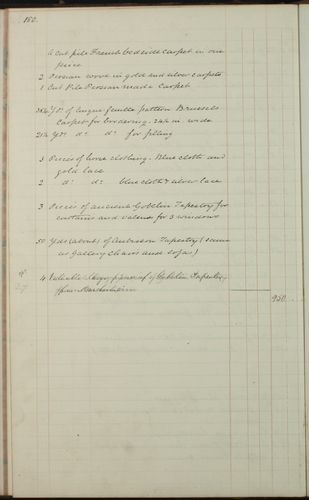 152.
A Cut pile French bedside Carpet in one
piece
2 Persian wove in gold and silver carpets
1 Cut Pile Persian made Carpet
Yds of Brussels
Carpet for bordering. 24 in wide
214 yds do do for filling
3 Pieces of horse clothing. Blue cloth and
gold lace
2 do do blue cloth & silver lace
3 Pieces of ancient Goblin Tapestry for
curtains and valens for 3 windows
50 Yds (about) of Aubusson Tapestry (same
as Gallery Chairs and sofas)
4 Valuable large pieces of Gobelin Tapestry
from
950